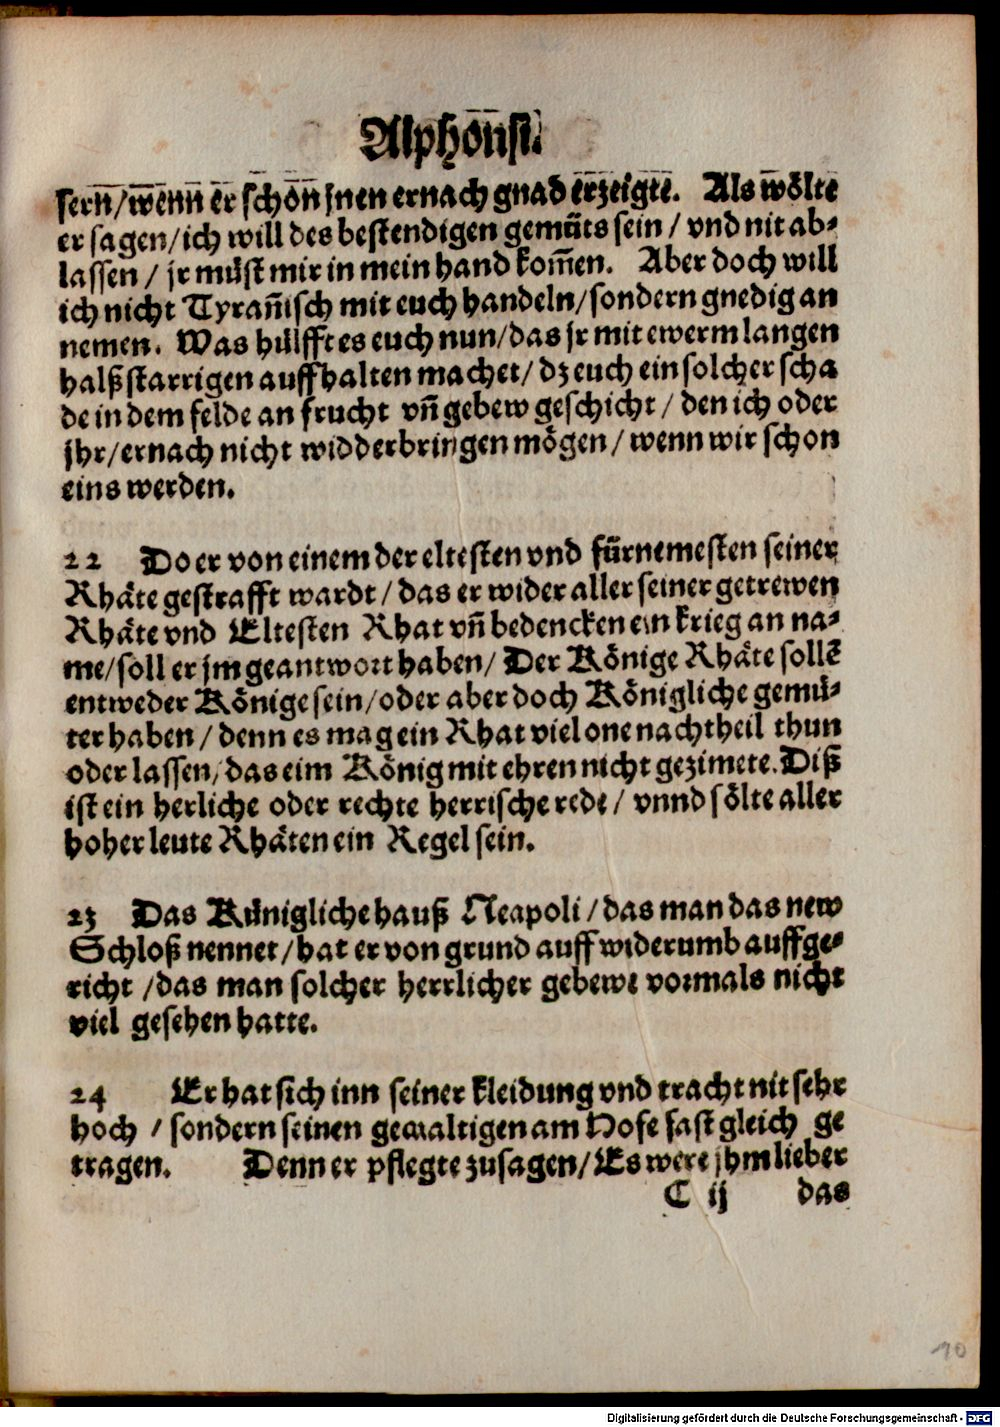 Alphonsi.
sern/wenn er schon jnen ernach gnad erzeigte. Als wölte
er sagen/ich will des bestendigen gemüts sein/ vnd nit ab-
lassen / jr müst mir in mein hand kom̄en. Aber doch will
ich nicht Tyran̄isch mit euch handeln/sondern gnedig an
nemen. Was hülfft es euch nun/das jr mit ewerm langen
halßstarrigen auffhalten machet/ dz euch ein solcher scha
de in dem felde an frucht vn̄ gebew geschicht/ den ich oder
jhr/ernach nicht widderbringen mögen/ wenn wir schon
eins werden.
22 Do er von einem der eltesten vnd fürnemesten seiner
Rhäte gestrafft wardt/ das er wider aller seiner getrewen
Rhäte vnd Eltesten Rhat vn̄ bedencken ein krieg an na-
me/soll er jm geantwort haben/ Der Könige Rhäte sollē
entweder Könige sein/oder aber doch Königliche gemü-
ter haben/ denn es mag ein Rhat viel one nachtheil thun
oder lassen/das eim König mit ehren nicht gezimete. Diß
ist ein herliche oder rechte herrische rede/ vnnd sölte aller
hoher leute Rhäten ein Regel sein.
23 Das Künigliche hauß Neapoli/das man das new
Schloß nennet/hat er von grund auff widerumb auffge-
richt /das man solcher herrlicher gebewe vormals nicht
viel gesehen hatte.
24 Er hat sich inn seiner kleidung vnd tracht nit sehr
hoch / sondern seinen gewaltigen am Hofe fast gleich ge
tragen. Denn er pflegte zusagen/Es were jhm lieber
C ij das
10
Digitalisierung gefördert durch die Deutsche Forschungsgemeinschaft - DFG